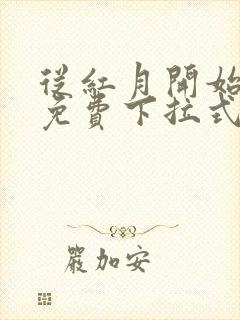 從紅月開始
免費下拉式
嚴加安